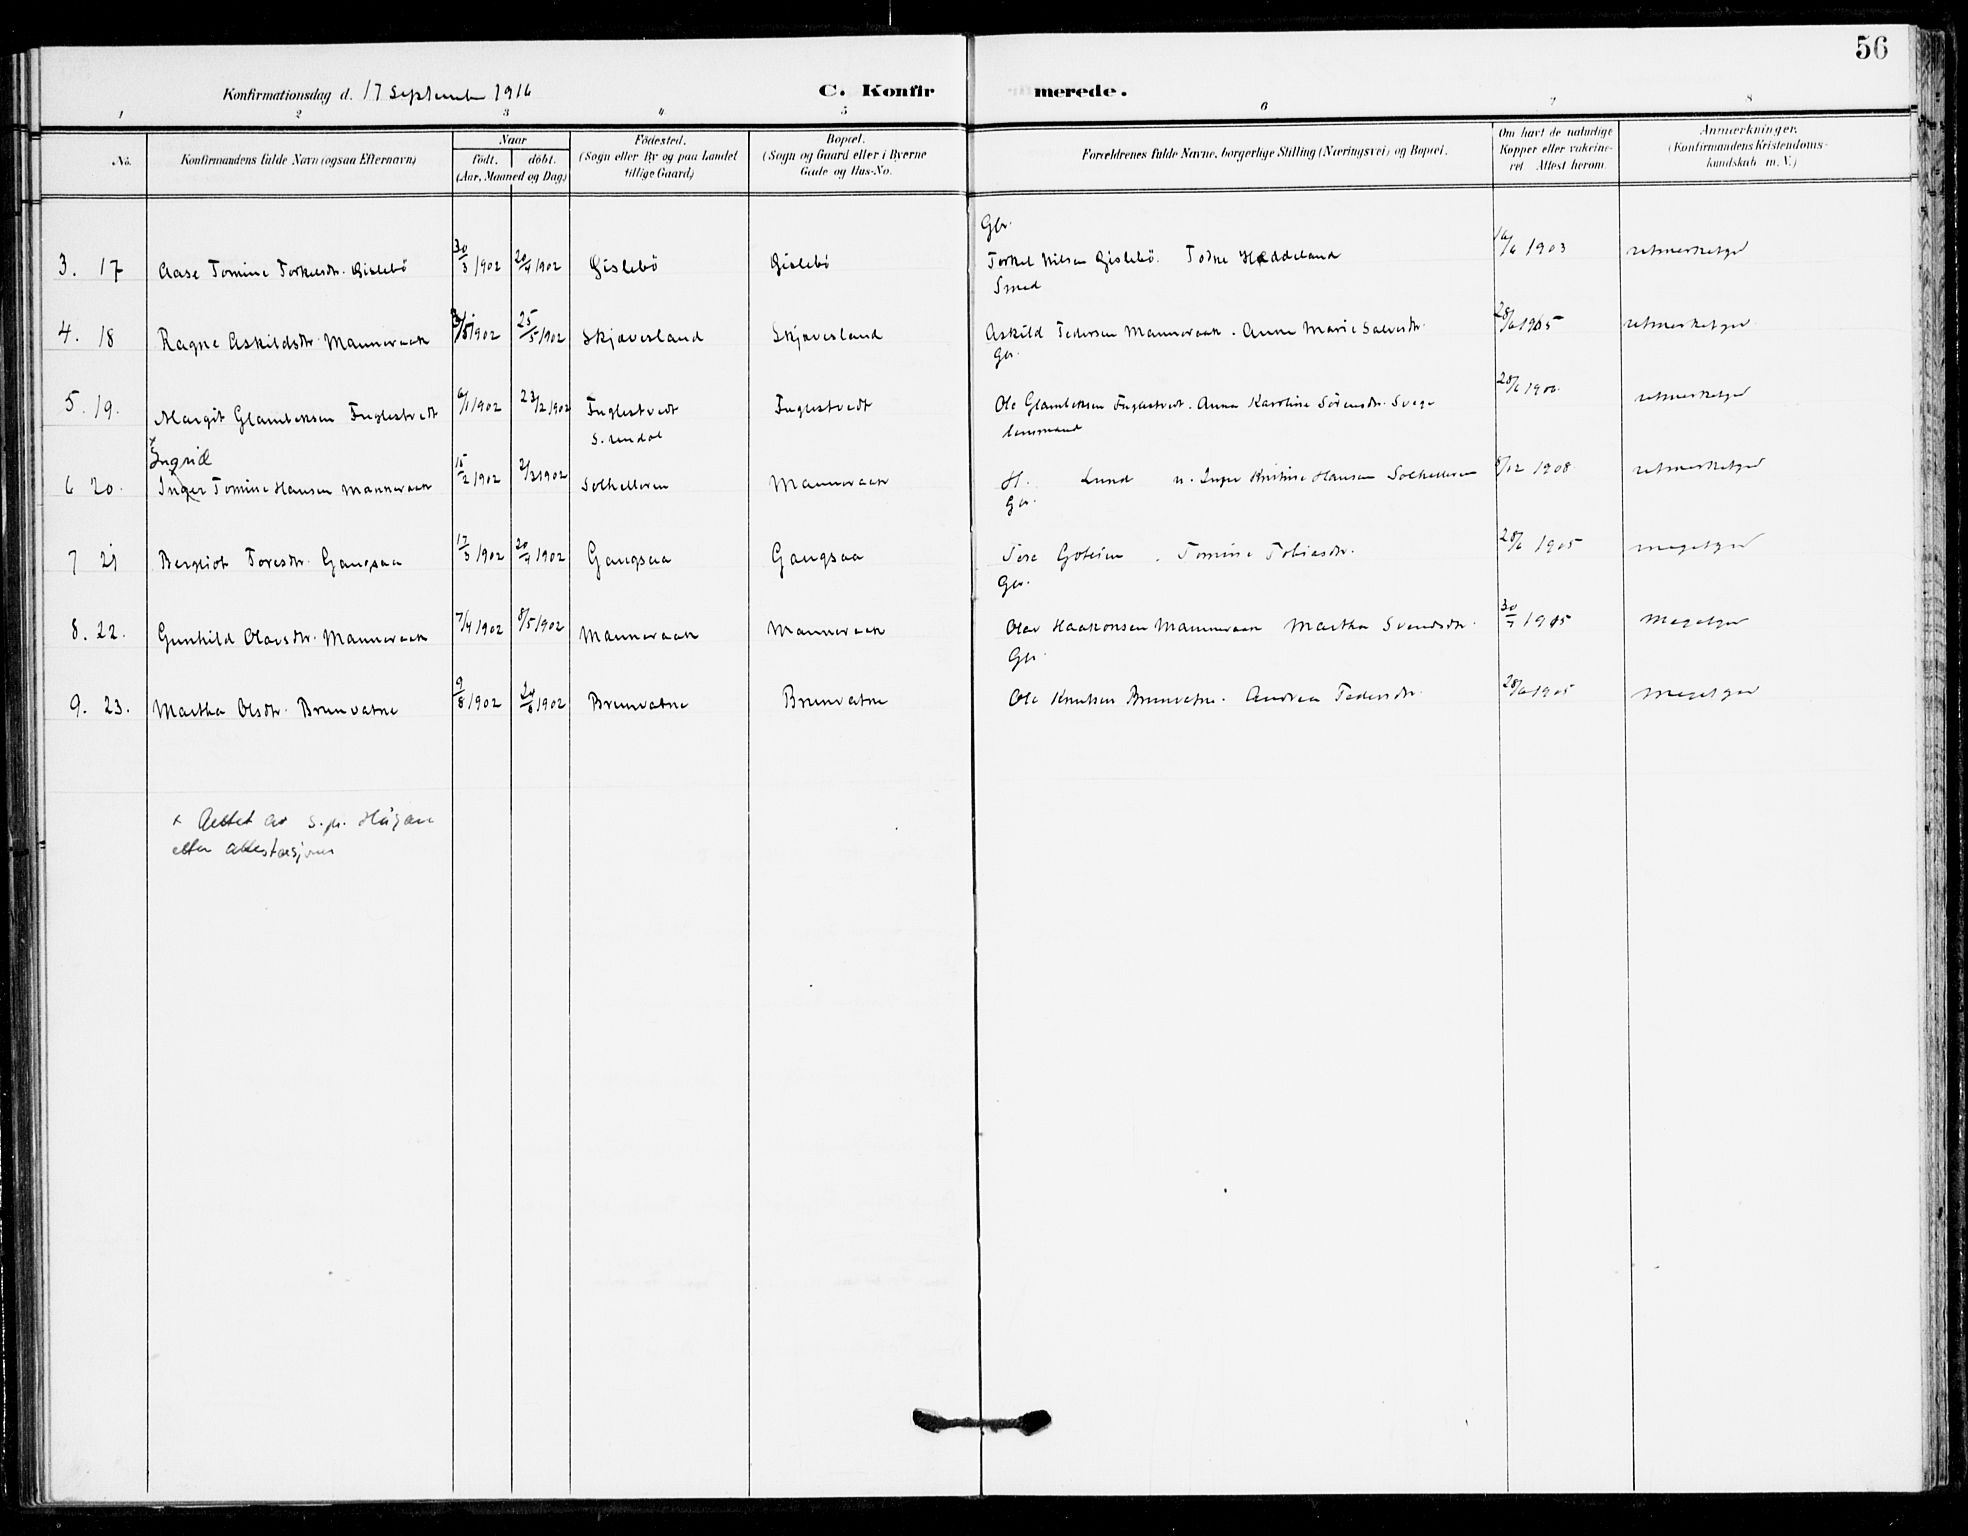 56
Konfirmationsdag d. 17 September 1916
C. Konfirmerede.
1 2 3 4 5 6 7 8
No. Konfirmandens fulde Navn (ogsaa Efternavn) Naar født. døbt. (Aar, Maaned og Dag) Fødested. (Sogn eller By og paa Landet tillige Gaard) Bopæl. (Sogn og Gaard eller i Byerne Gade og Hus-No. Forældrenes fulde Navne, borgerlige Stilling (Næringsvei) og Bopæl. Om havt de naturlige Kopper eller vakcineret Attest herom. Anmerkninger. (Konfirmandens Kristendomskundskab m. V.)
Gbr.
3. 17 Aase Tomine Torkelsdr. Gislebö 30/3 1902 20/4 1902 Gislebö Gislebö Torkel Nilsen Gislebö. Tone Hæddeland 1903 retmerketgod
Smed
4. 18 Ragne Askildsdr. Manneraak 1902 25/5 1902 Skjævesland Skjævesland Askild Pedersen Manneraak. Anne Marie Salvesdr. 28/6 1905 retmerketgod
Gbr.
5. 19. Margit Glambeksen Fuglestvedt 6/1 1902 23/2 1902 Fuglestvedt Fuglestvedt Ole Glambeksen Fuglestvedt. Anna Karoline Sörensdr. 28/6 retmerketgod
S. Undal lensmand
x
Ingrid
6 20. Inger Tomine Hansen Manneraak 15/2 1902 2/2 1902 Solkelleren Manneraak H. Lund u. Inger Kristine Hansen Solkelleren 8/12 1908 retmerketgod
Gbr.
7 21 Bergliot Toresdr. Gangsaa 17/3 1902 20/4 1902 Gangsaa Gangsaa Tore . Tomine Tobiasdr. 28/6 1905 megetgod
Gbr.
8. 22. Gunhild Olavsdtr. Manneraak 7/4 1902 8/5 1902 Manneraak Manneraak Olav Haakonsen Manneraak Martha Svendsdtr. 30/7 1905 megetgod
Gbr.
9. 23. Martha Olsdtr. Brunvatne 9/8 1902 24/8 1902 Brunvatne Brunvatne Ole Knutsen Brunvatne. Andrea Pedersdtr. 28/6 1905 megetgod
x Rettet av s.pr.
etter attestasjoner